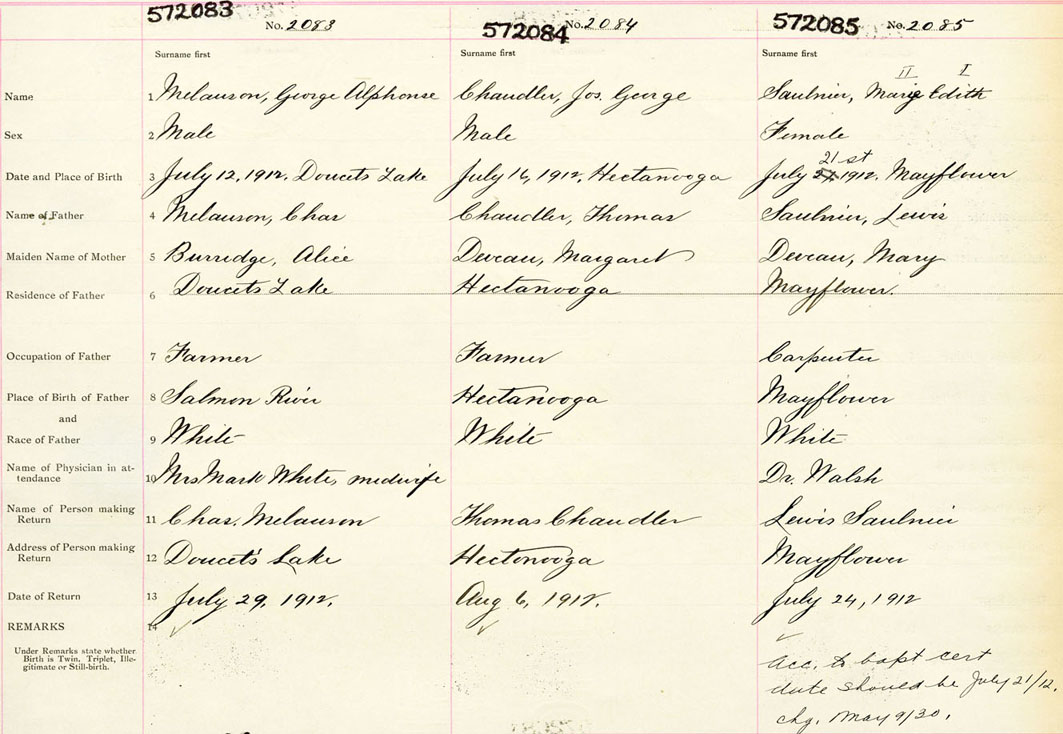 572083 No. 2083 572084 No. 2084 572085 No. 2085
Surname first Surname first Surname first
II I
Name 1 Melauson, George Alphonse Chandler, Jos. George Saulnier, Marie Edith
Sex 2 Male Male Female
21st
Date and Place of Birth 3 July 12, 1912. Doucets Lake July 16, 1912, Hectanooga July 1912. Mayflower
Name of Father 4 Melauson, Chas Chandler, Thomas Saulnier, Lewis
Maiden Name of Mother 5 Burridge, Alice Deveau, Margaret Deveau, Mary
Residence of Father 6 Doucets Lake Hectanooga Mayflower.
Occupation of Father 7 Farmer Farmer Carpenter
Place of Birth of Father 8 Salmon River Hectanooga Mayflower
and
Race of Father 9 White White White
Name of Physician in at-
tendance 10 Mrs Mark White, midwife Dr. Walsh
Name of Person making
Return 11 Chas. Melauson Thomas Chandler Lewis Saulnier
Address of Person making
Return 12 Doucet's Lake Hectonooga Mayflower
Date of Return 13 July 29, 1912. Aug 6, 1912. July 24, 1912
REMARKS 14
Under Remarks state whether
Birth is Twin. Triplet, Ille-
gitimate or Still-birth.
Acc. to bapt cert
date should be July 21/12.
chg. May 9/30.